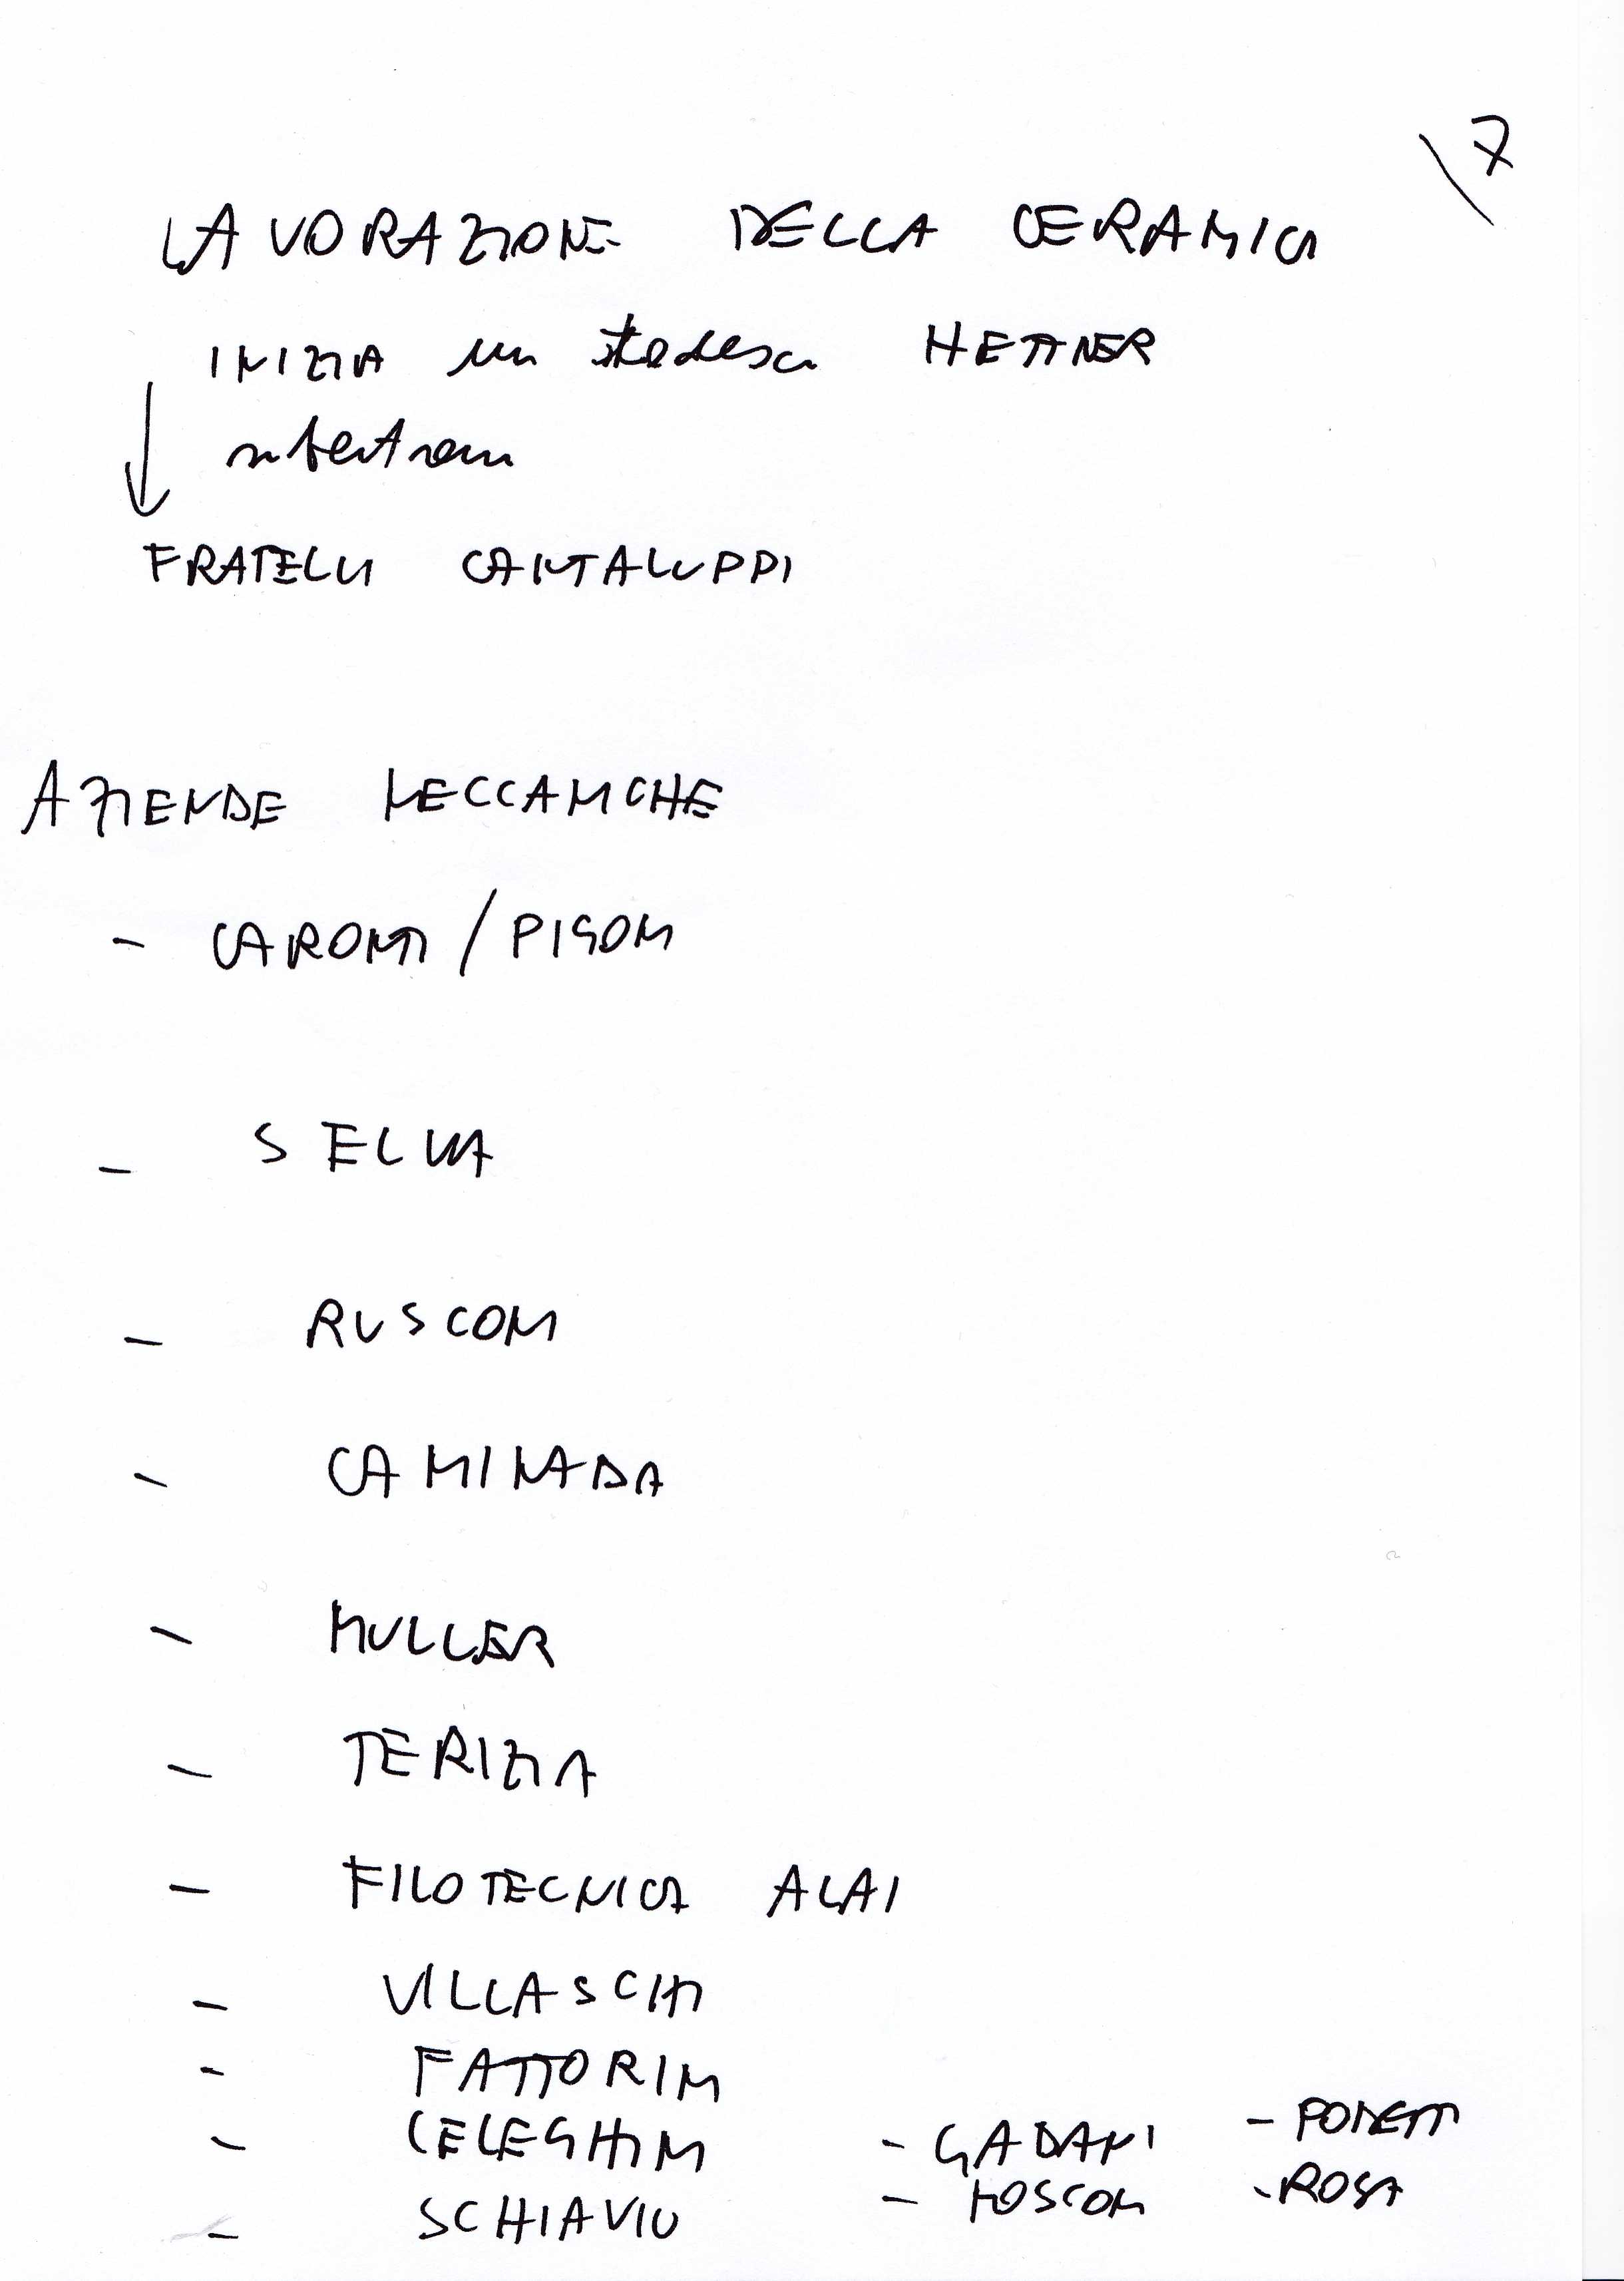 7
LAVORAZIONE DELLA CERAMICA
INIZIA un tedesco HETTNER
subentrano
FRATELLI CANTALUPPI
AZIENDE MECCANICHE
- CARONTI / PIGONI
- SELVA
- RUSCONI
- CAMINADA
- MULLER
- TERIZZIA
- FILOTECNICA ALAI
- VILLASCHI
- FATTORINI
- CELEGHINI - GADANI - PODETTI
- SCHIAVIO - TOSCONI - ROSA